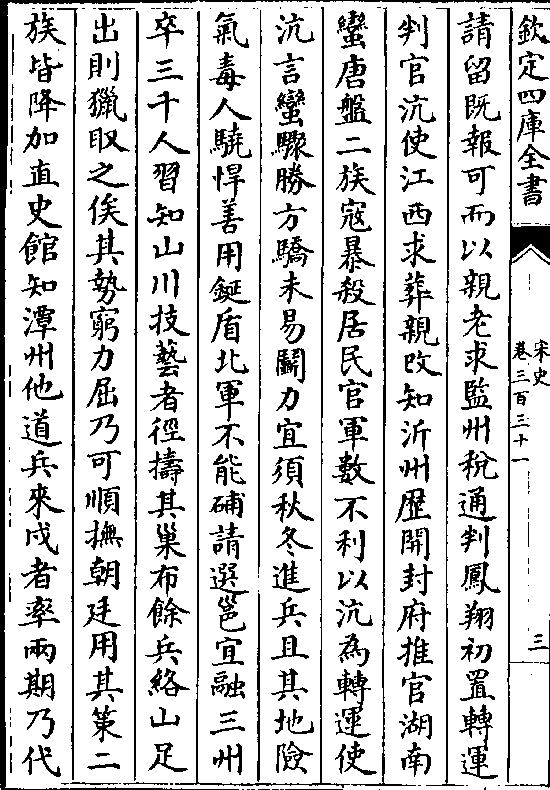 欽定四庫全書
宋史
卷三百三十一
三
請留既報可而以親老求監州稅通判鳳翔初置轉運
判官沆使江西求葬親改知沂州歴開封府推官湖南
蠻唐盤二族寇暴殺居民官軍數不利以沆為轉運使
沆言蠻驟勝方驕未易鬭力宜須秋冬進兵且其地險
氣毒人驍悍善用鋋盾北軍不能確請選邕宜融三州
卒三千人習知山川技藝者徑擣其巢布餘兵絡山足
出則獵取之俟其勢窮力屈乃可順撫朝廷用其策二
族皆降加直史館知潭州他道兵來戍者率兩期乃代